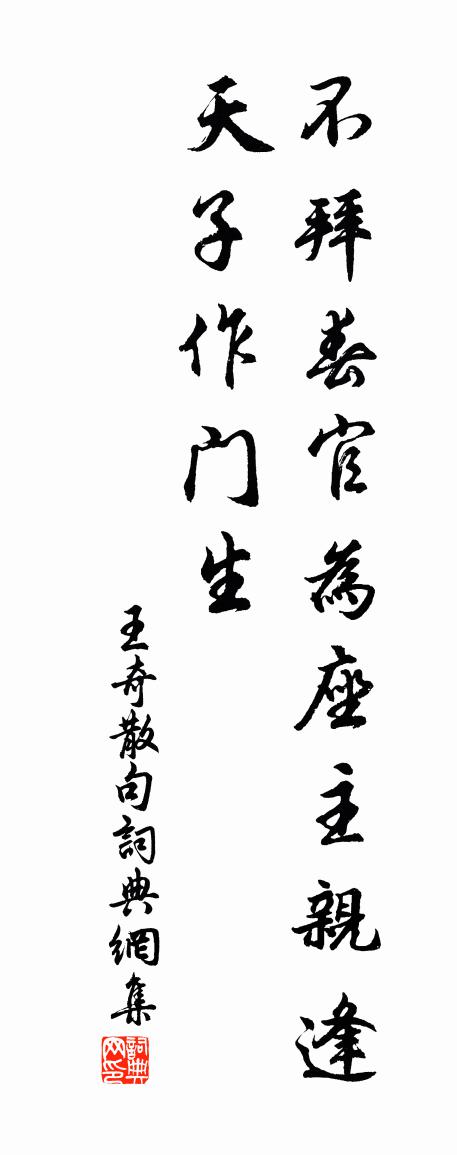 不拜春官為座主親逢
天子作门生
王奇散句詞典網集
詞典网印